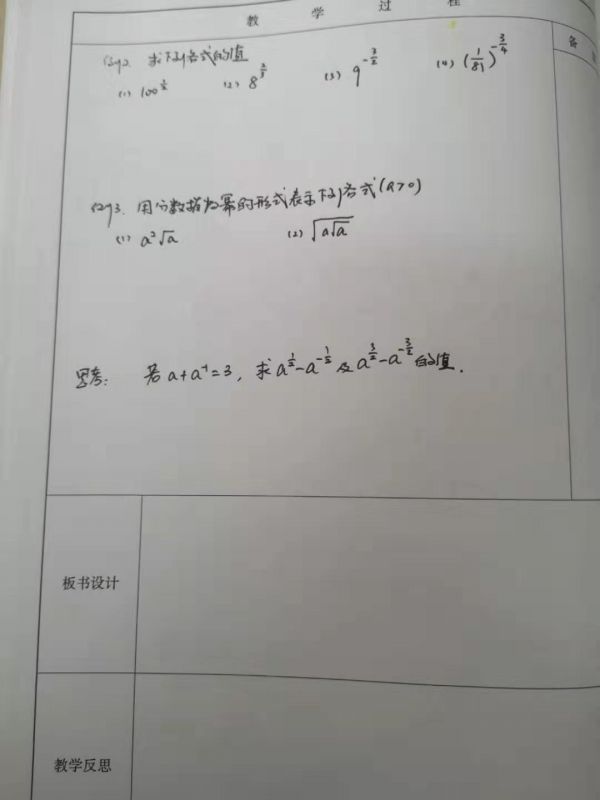 教 学 过 程
备
例2. 求下列各式的值
(1) 100^{1/2} (2) 8^{2/3} (3) 9^{-3/2} (4) (1/81)^{-3/4}
例3. 用分数指数幂的形式表示下列各式(a>0)
(1) a²√a (2) √(a√a)
思考: 若 a+a⁻¹=3, 求 a^{1/2}-a^{-1/2} 及 a^{3/2}-a^{-3/2} 的值.
板书设计
教学反思